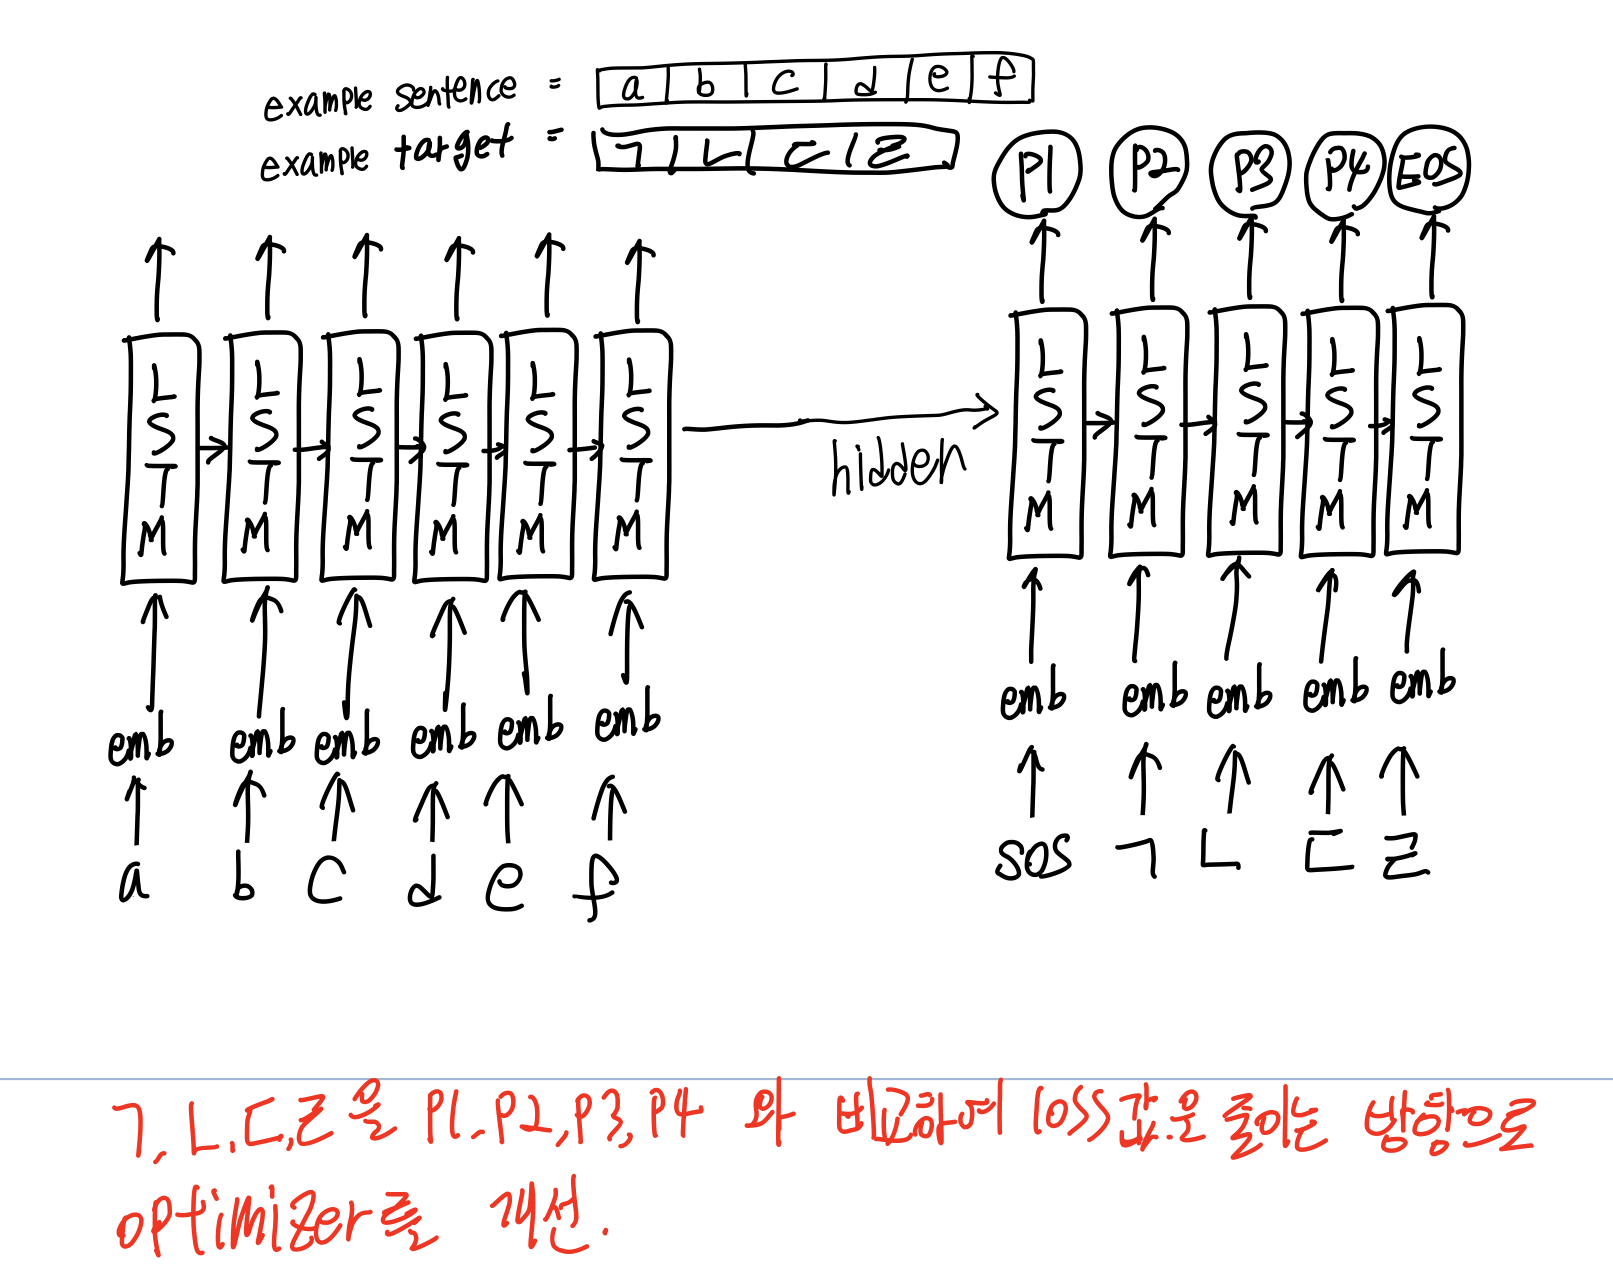 example sentence = a b c d e f
example target = ㄱ ㄴ ㄷ ㄹ
P1 P2 P3 P4 EOS
LSTM LSTM LSTM LSTM LSTM LSTM
hidden
LSTM LSTM LSTM LSTM LSTM
emb emb emb emb emb emb
emb emb emb emb emb
a b c d e f
SOS ㄱ ㄴ ㄷ ㄹ
ㄱ,ㄴ,ㄷ,ㄹ을 P1,P2,P3,P4 와 비교하여 loss값을 줄이는 방향으로
optimizer를 개선.